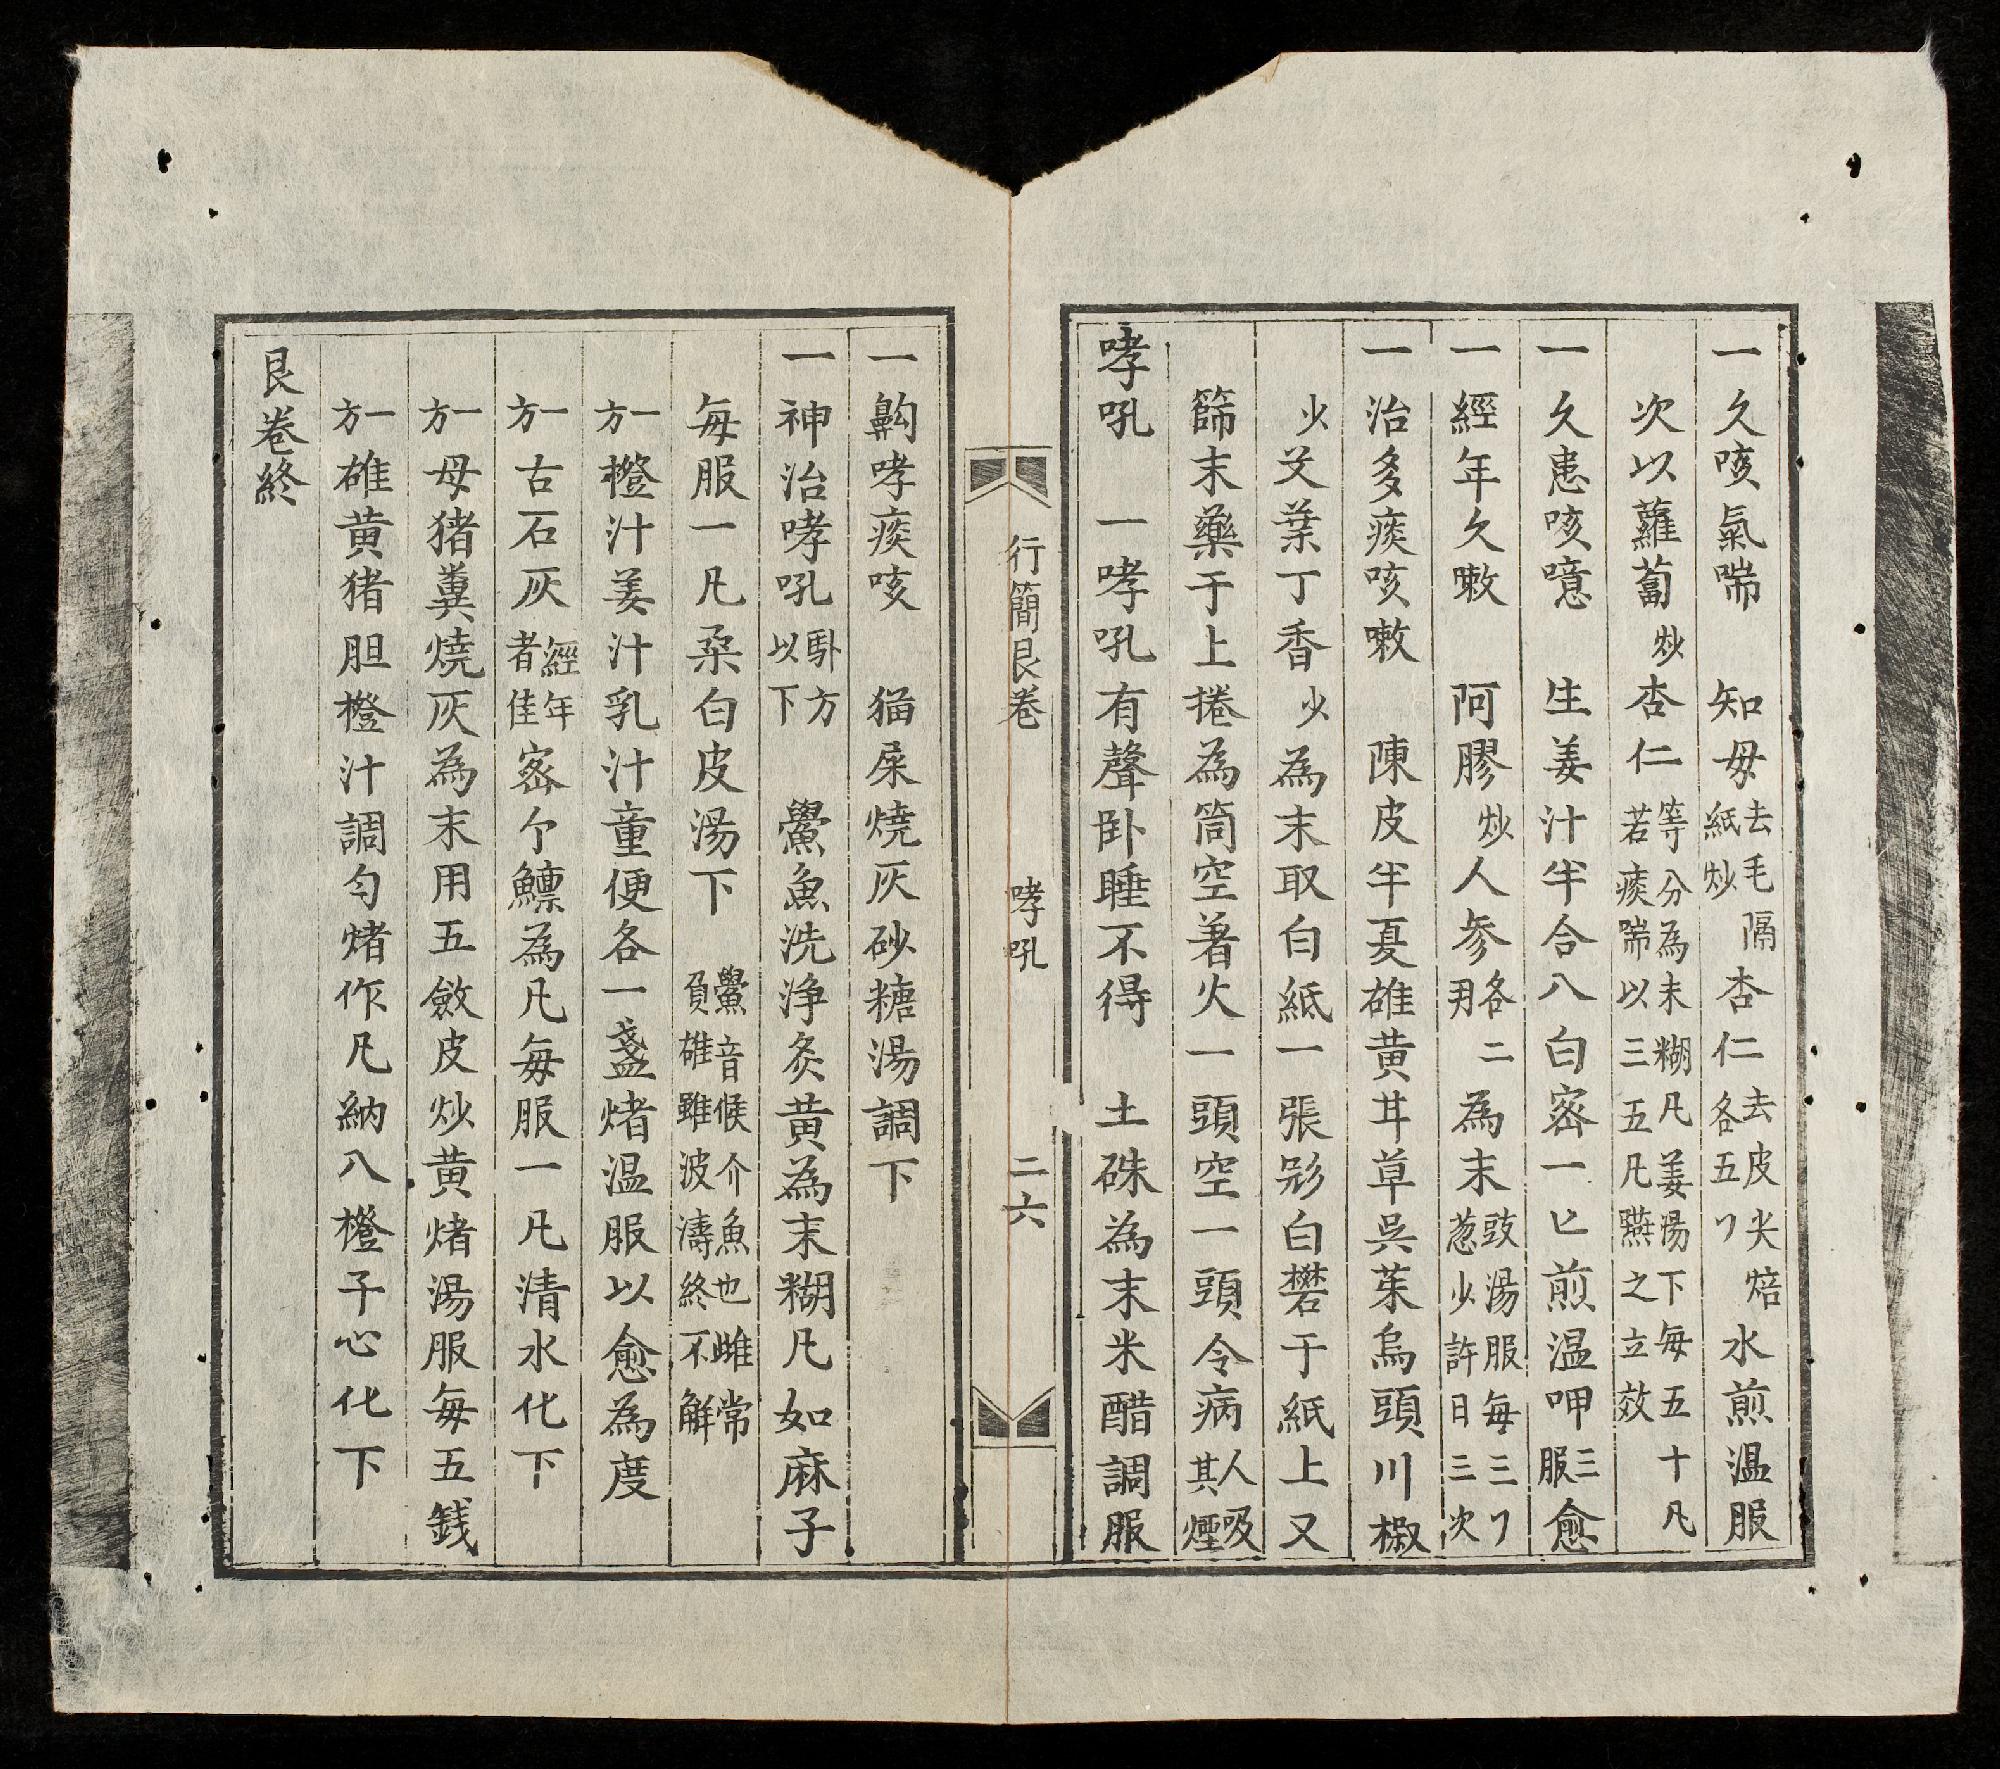 一久咳氣喘　知母去毛隔紙炒杏仁去皮尖焙各五𠃌水煎温服
次以蘿蔔炒杏仁等分為末糊凡姜湯下每五十凡若痰喘以三五凡嚥之立效
一久患咳噫　生姜汁半合八白宻一匕煎温呷三服愈
一經年久嗽　阿膠炒人參各二用為末豉湯服每三𠃌葱少許日三次
一治多痰咳嗽　陳皮半夏雄黄甘草吳茱烏頭川椒
少艾葉丁香少為末取白紙一張𣦸白礬于紙上又
篩末藥于上捲為筒空著火一頭空一頭令病人吸其煙
哮吼　一哮吼有聲卧睡不得　土硃為末米醋調服
行簡艮卷　哮吼　二六
一齁哮痰咳　猫屎燒灰砂糖湯調下
一神治哮吼卧方以下　鱟魚洗浄炙黄為末糊凡如麻子
每服一凡桑白皮湯下　鱟音候介魚也雌常負雄雖波濤終不解
一方橙汁姜汁乳汁童便各一盞煮温服以愈為度
一方古石灰經年者佳宻个鰾為凡每服一凡清水化下
一方母猪糞燒灰為末用五斂皮炒黄煮湯服每五錢
一方雄黄猪胆橙汁調匀煮作凡納八橙子心化下
艮卷終